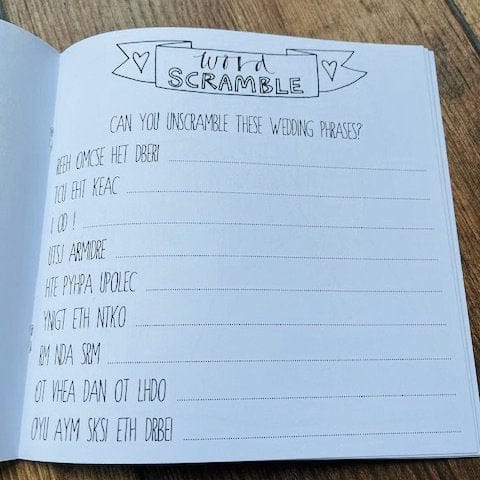 word
SCRAMBLE
CAN YOU UNSCRAMBLE THESE WEDDING PHRASES?
REEH OMCSE HET DBERI
TCU EHT KEAC
I OD !
UTSJ ARMIDRE
HTE PYHPA UPOLEC
YNIGT ETH NTKO
RM NDA SRM
OT VHEA DAN OT LHDO
OYU AYM SKSI ETH DRBEI